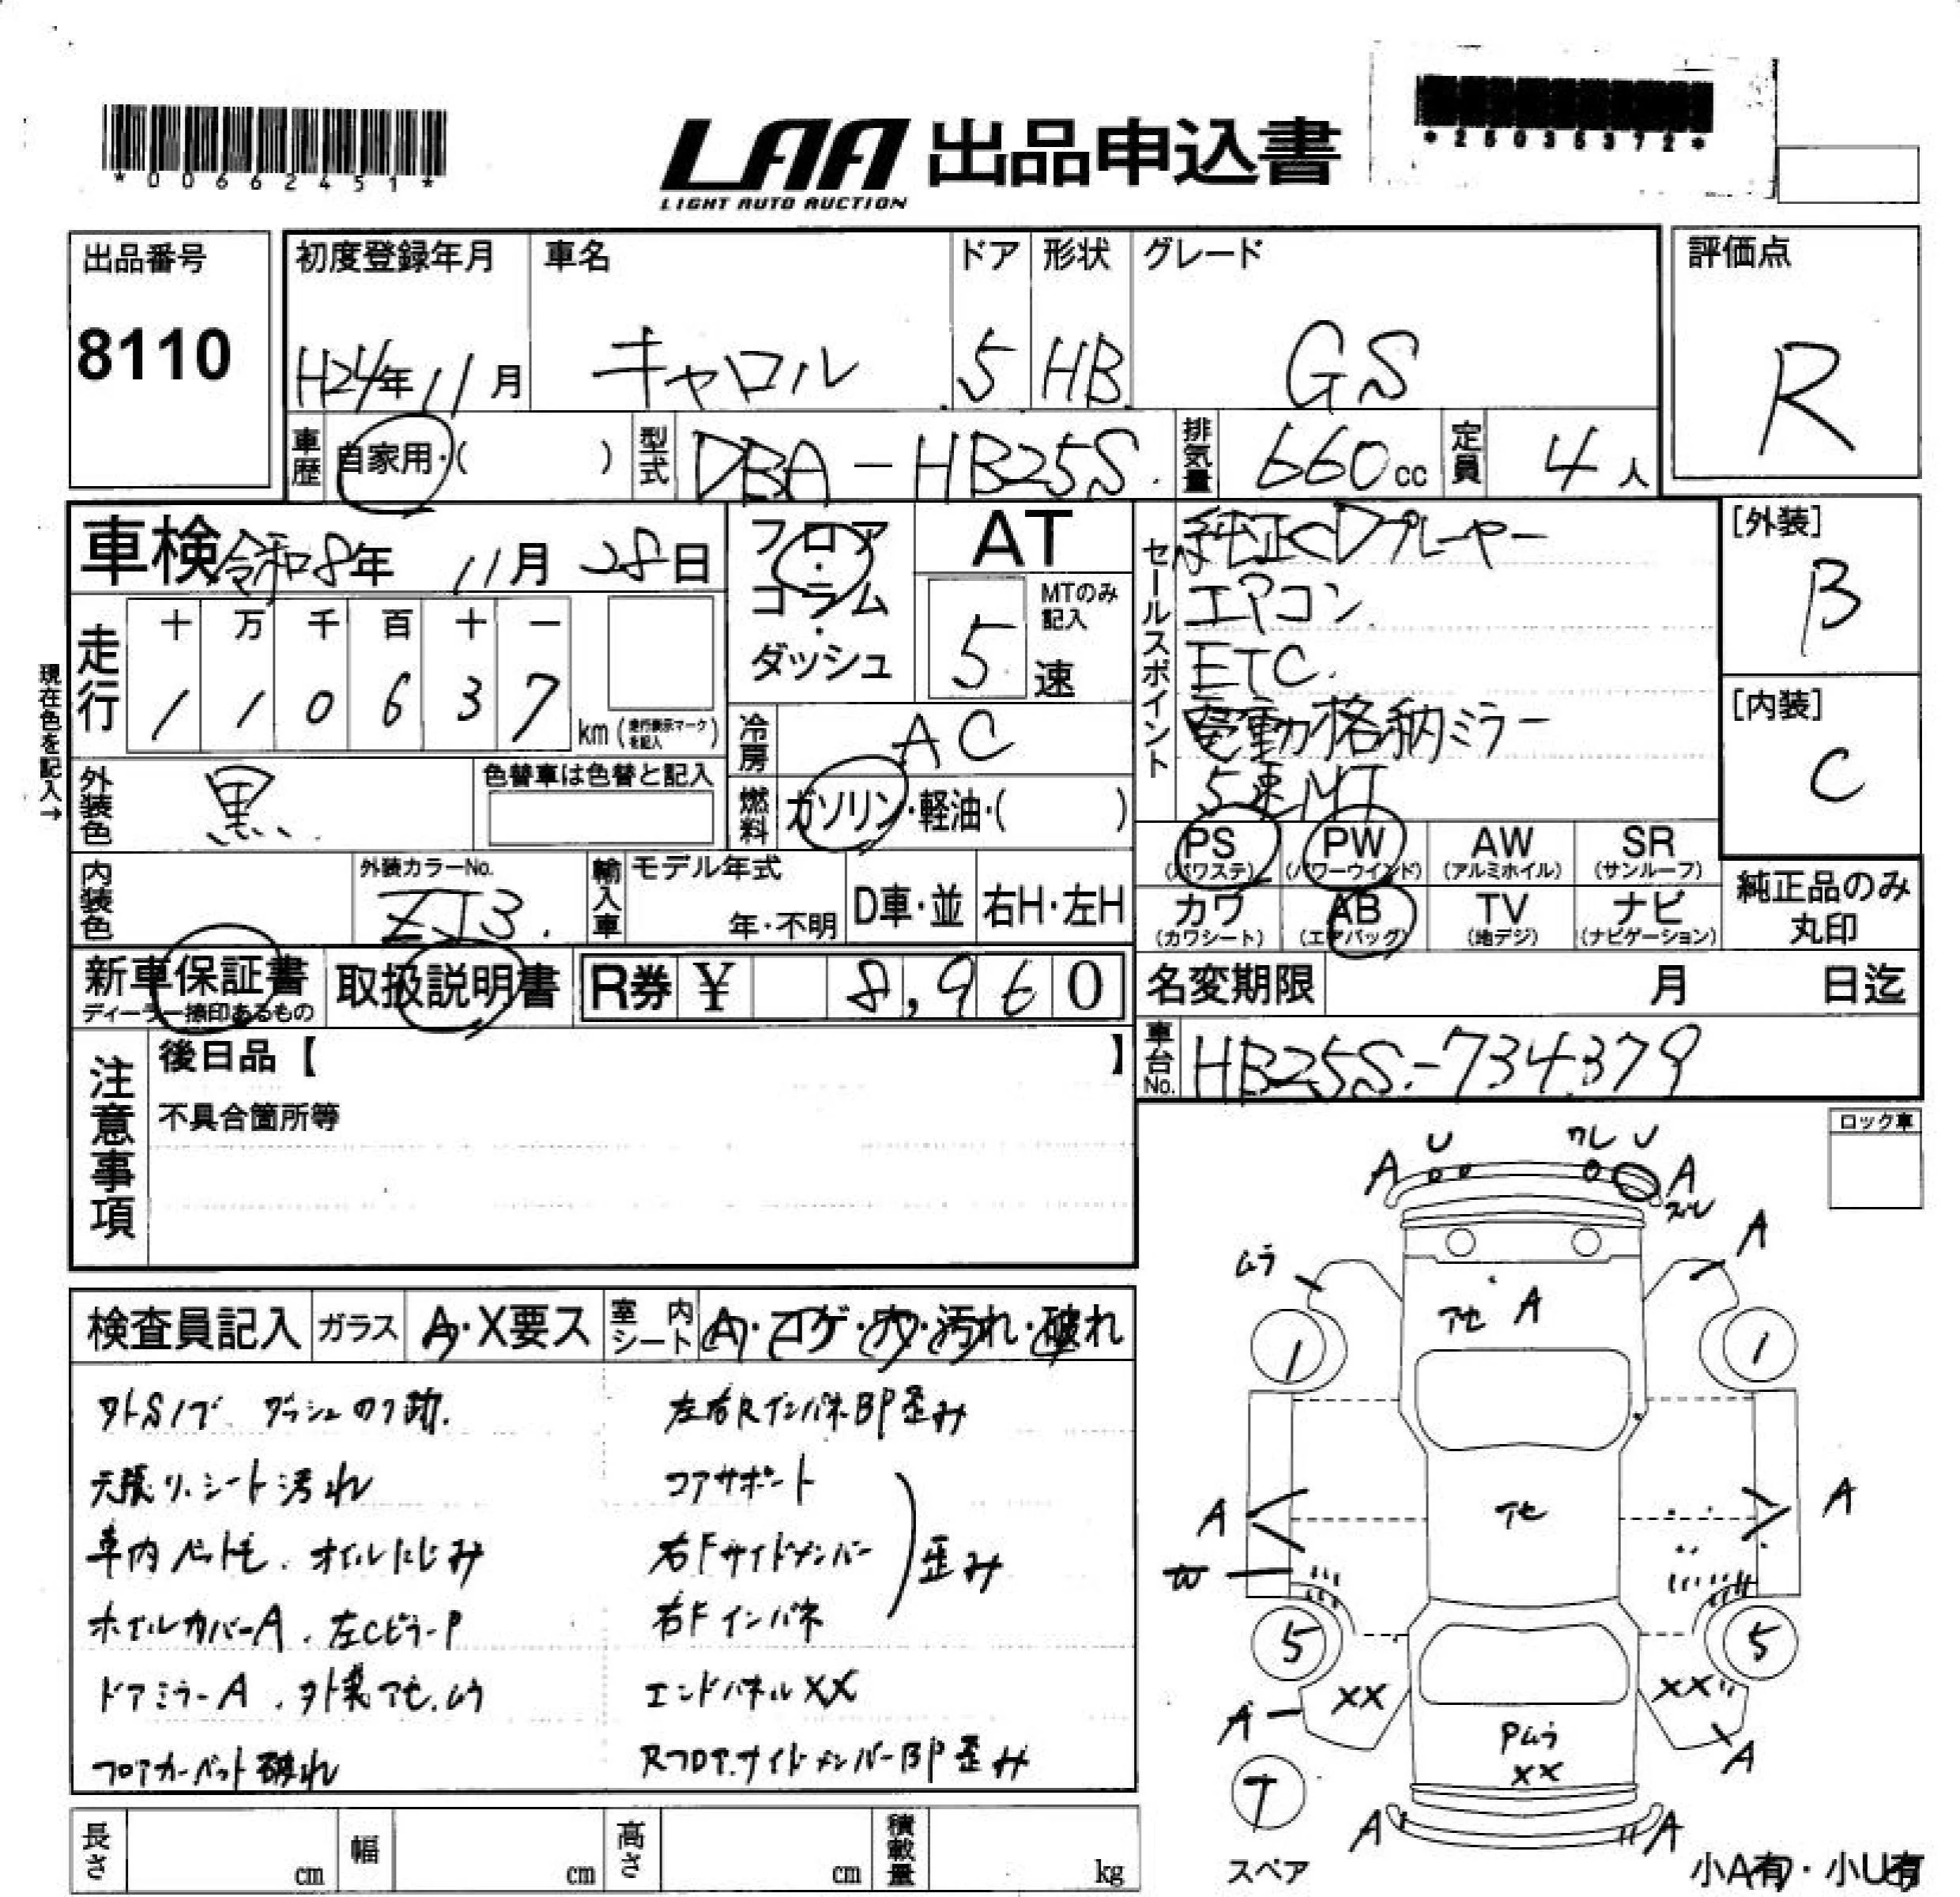 *00662451*
LAA 出品申込書
LIGHT AUTO AUCTION
*25035372*
出品番号
8110
初度登録年月
H24年11月
車名
キャロル
ドア
5
形状
HB
グレード
GS
評価点
R
車歴
自家用・( )
型式
DBA-HB25S
排気量
660cc
定員
4人
車検 令和8年 11月 28日
フロア・コラム・ダッシュ
AT
MTのみ記入
5速
セールスポイント
純正CDプレーヤー
エアコン
ETC
電動格納ミラー
5速MT
[外装]
B
[内装]
C
現在色を記入→
走行
十 万 千 百 十 一
1 1 0 6 3 7 km (走行表示マークを記入)
冷房
AC
外装色
黒
色替車は色替と記入
燃料
ガソリン・軽油・( )
PS (パワステ)
PW (パワーウインド)
AW (アルミホイル)
SR (サンルーフ)
内装色
外装カラーNo.
ZJ3
輸入車
モデル年式
年・不明
D車・並
右H・左H
カワ (カワシート)
AB (エアバッグ)
TV (地デジ)
ナビ (ナビゲーション)
純正品のみ丸印
新車保証書
ディーラー捺印あるもの
取扱説明書
R券 ¥ 8,960
名変期限 月 日迄
車台No.
HB25S-734379
注意事項
後日品【 】
不具合箇所等
ロック車
検査員記入
ガラス
A・X要ス
室内シート
A・コゲ・穴・汚れ・破れ
外Sノブ ダッシュのり跡
天張り、シート汚れ
車内ペット毛、オイルにじみ
ホイルカバーA、左CピラーP
ドアミラーA、外装アセ、ムラ
フロアカーペット破れ
左右RインパネBP歪み
コアサポート
右Fサイドメンバー
右Fインパネ
歪み
エンドパネルXX
RフロアサイドメンバーBP歪み
U
ワレ U
A
A
スレ
ムラ
A
アセ A
1
1
A
アセ
A
W
5
5
XX
XX
A
A
Pムラ
XX
T
スペア
A
A
小A有・小U有
長さ cm
幅 cm
高さ cm
積載量 kg